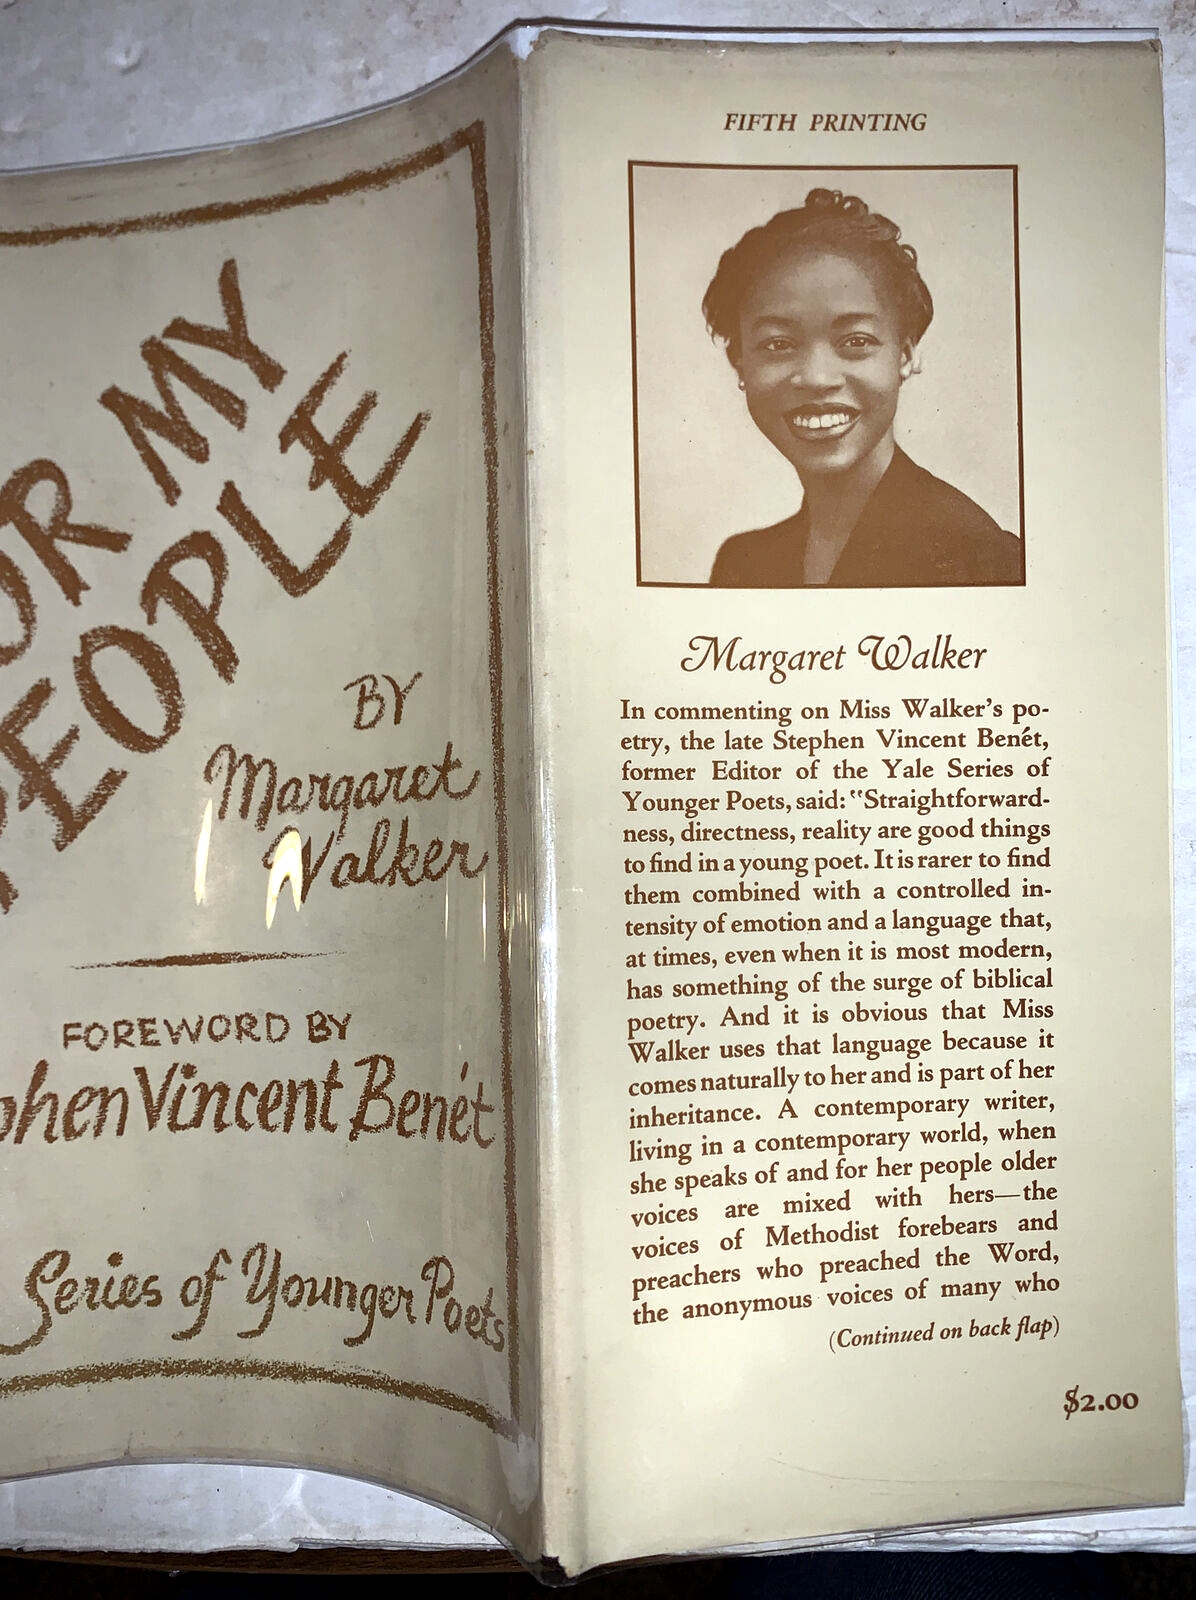 OR MY
PEOPLE
BY
Margaret
Walker
FOREWORD BY
phen Vincent Benét
Series of Younger Poets
FIFTH PRINTING
Margaret Walker
In commenting on Miss Walker's po-
etry, the late Stephen Vincent Benét,
former Editor of the Yale Series of
Younger Poets, said: "Straightforward-
ness, directness, reality are good things
to find in a young poet. It is rarer to find
them combined with a controlled in-
tensity of emotion and a language that,
at times, even when it is most modern,
has something of the surge of biblical
poetry. And it is obvious that Miss
Walker uses that language because it
comes naturally to her and is part of her
inheritance. A contemporary writer,
living in a contemporary world, when
she speaks of and for her people older
voices are mixed with hers—the
voices of Methodist forebears and
preachers who preached the Word,
the anonymous voices of many who
(Continued on back flap)
$2.00